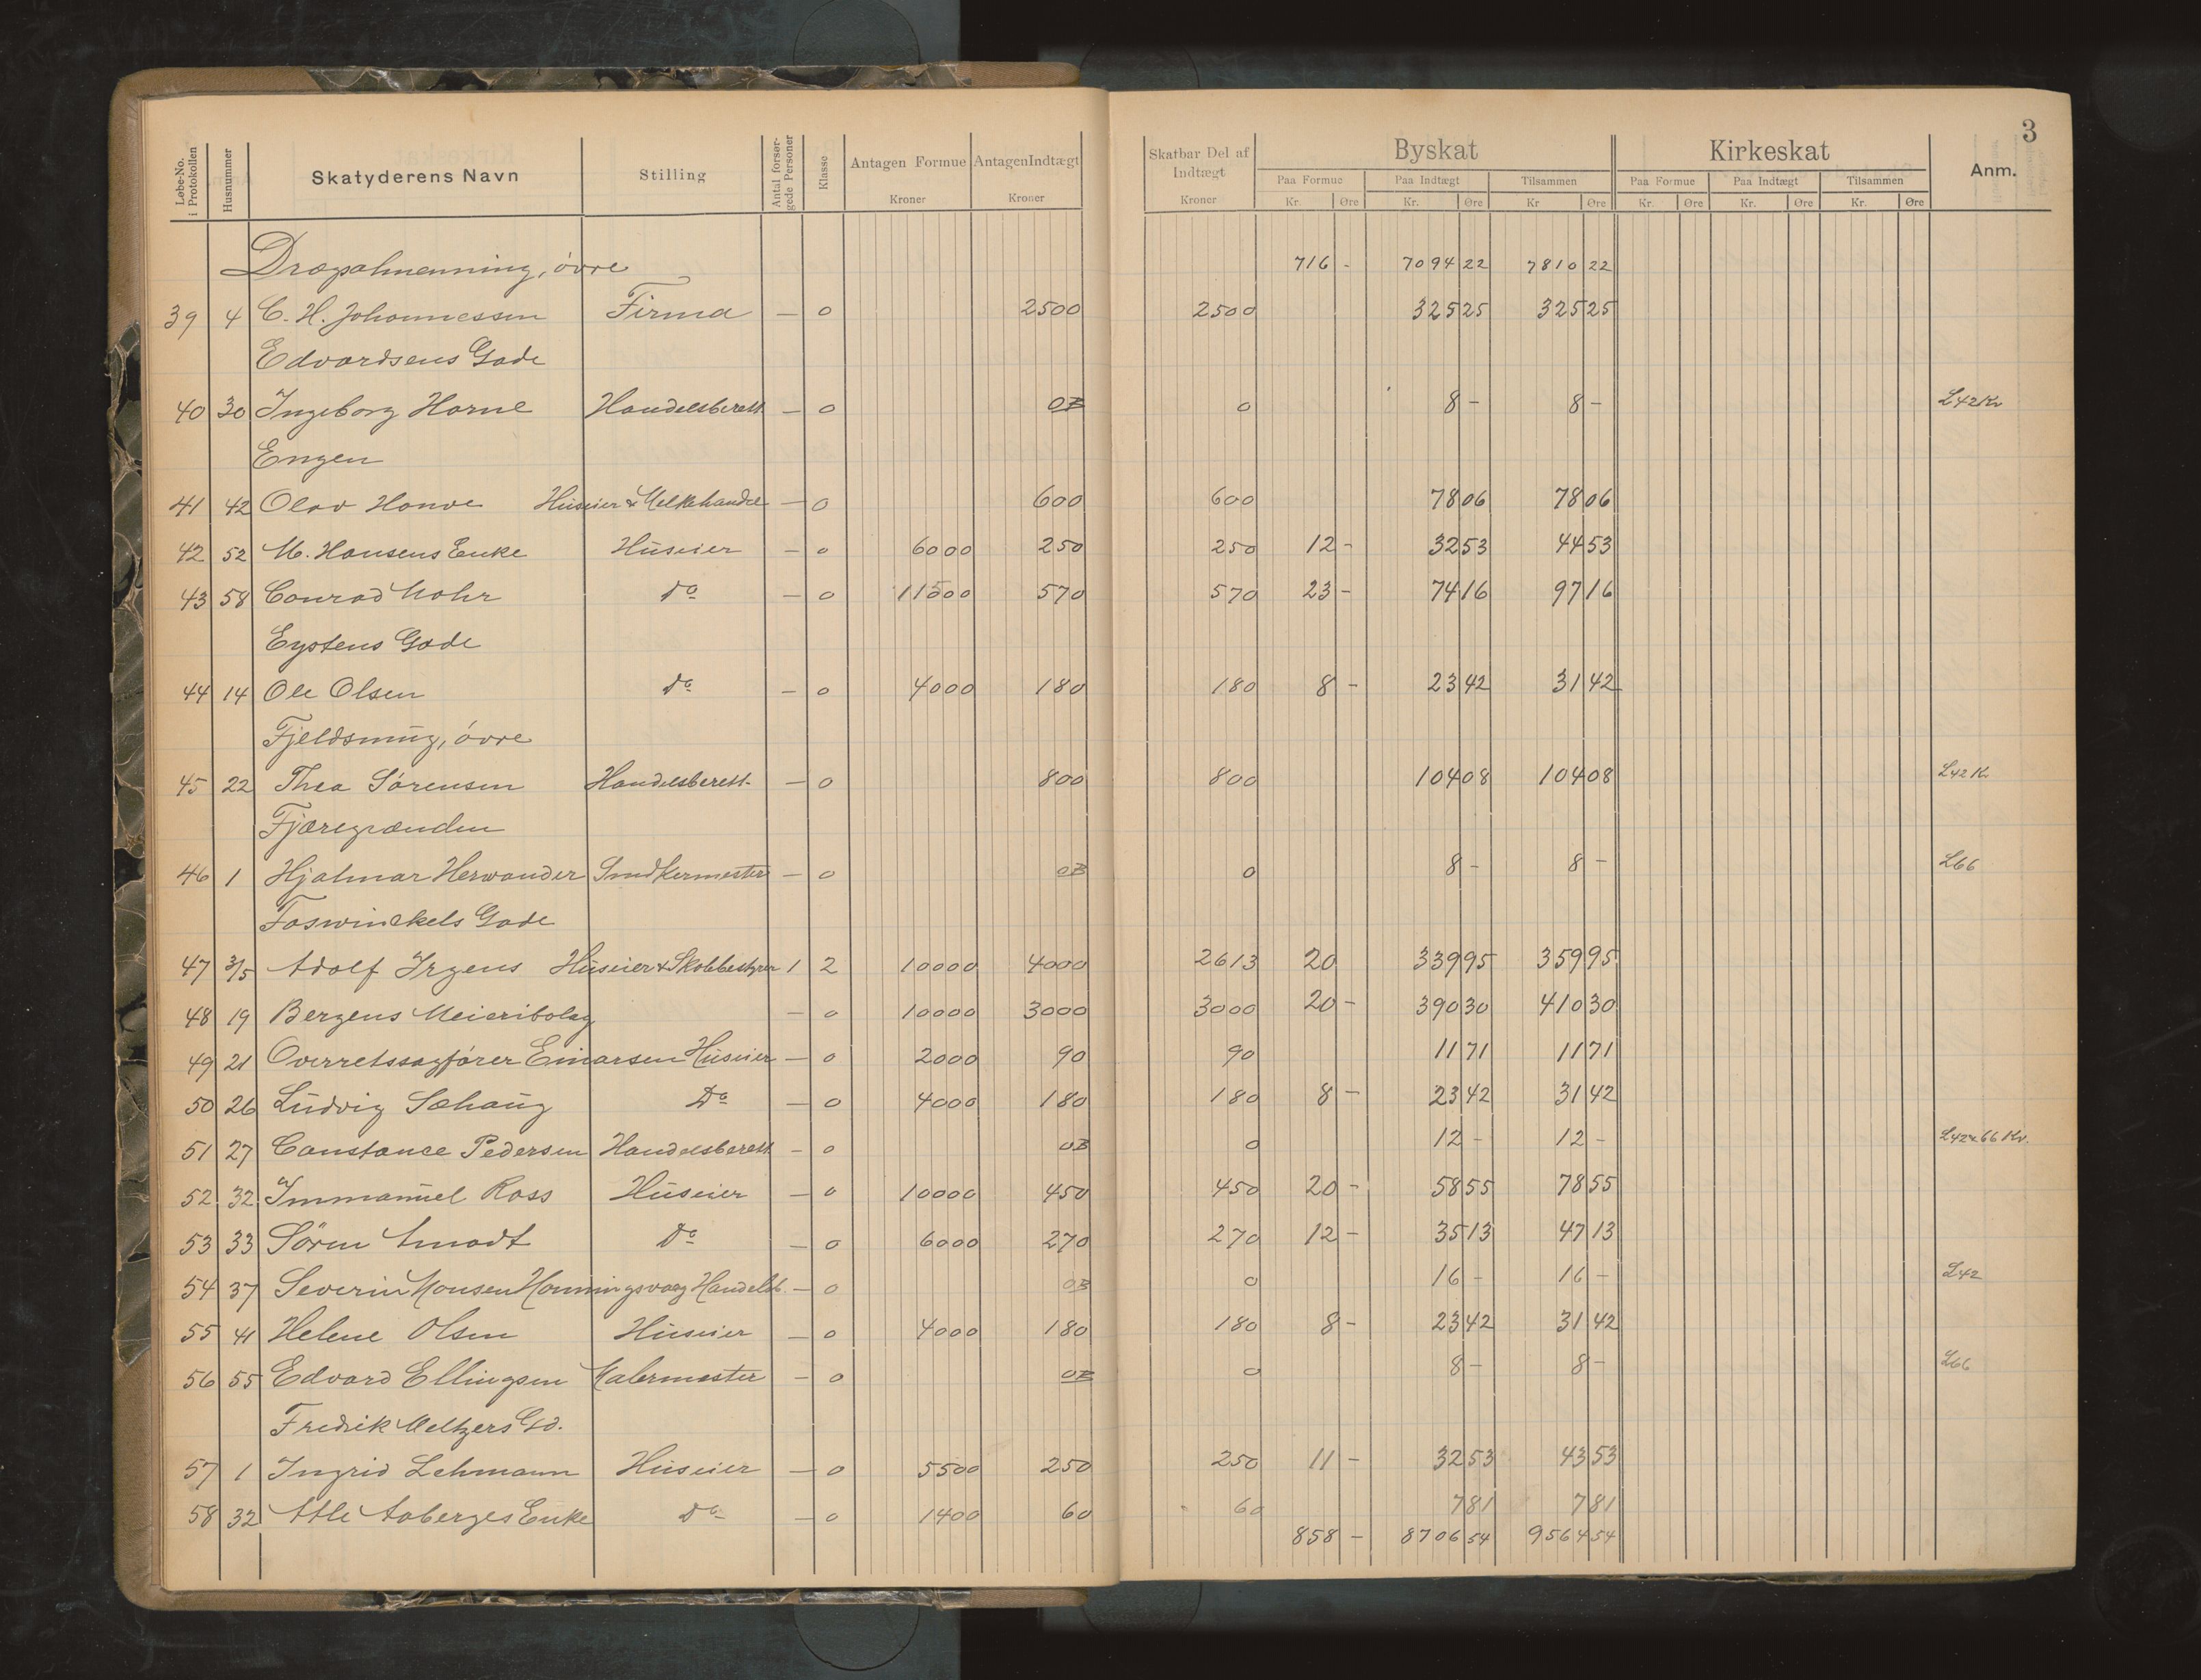 3
Løbe-No. i Protokollen Husnummer Skatyderens Navn Stilling Antal forsørgede Personer Klasse Antagen Formue Kroner Antagen Indtægt Kroner Skatbar Del af Indtægt Kroner Byskat Paa Formue Kr. Øre Paa Indtægt Kr. Øre Tilsammen Kr Øre Kirkeskat Paa Formue Kr. Øre Paa Indtægt Kr. Øre Tilsammen Kr. Øre Anm.
Drægsalmenning, övre 716 - 7094 22 7810 22
39 4 C. H. Johannessen Firma — 0 2500 2500 325 25 325 25
Edvardsens Gade
40 30 Ingeborg Horne Handelsberett. — 0 OB 0 8 - 8 - L42Kv
Engen
41 42 Olav Hanve Huseier & Melkehandel — 0 600 600 78 06 78 06
42 52 M. Hansens Enke Huseier — 0 6000 250 250 12 - 32 53 44 53
43 58 Conrad Mohr do — 0 11500 570 570 23 - 74 16 97 16
Eystens Gade
44 14 Ole Olsen do — 0 4000 180 180 8 - 23 42 31 42
Fjeldsmug, övre
45 22 Thea Sörensen Handelsberett. — 0 800 800 104 08 104 08 L42K.
Fjæregrænden
46 1 Hjalmar Herwander Snedkermester — 0 OB 0 8 - 8 - L66
Foswinckels Gade
47 3/5 Adolf Irgens Huseier & Skolebestyrer 1 2 10000 4000 2613 20 339 95 359 95
48 19 Bergens Meieribolag — 0 10000 3000 3000 20 - 390 30 410 30
49 21 Overretssagförer Einarsen Huseier — 0 2000 90 90 11 71 11 71
50 26 Ludvig Sæhaug Do — 0 4000 180 180 8 - 23 42 31 42
51 27 Constance Pedersen Handelsberett. — 0 OB 0 12 - 12 - L42 & 66 Kv.
52 32 Immanuel Ross Huseier — 0 10000 450 450 20 - 58 55 78 55
53 33 Sören Smodt do — 0 6000 270 270 12 - 35 13 47 13
54 37 Severin Monsen Honningsvaag Handelsb. — 0 OB 0 16 - 16 - L42
55 41 Helene Olsen Huseier — 0 4000 180 180 8 - 23 42 31 42
56 55 Edvard Ellingsen Malermester — 0 OB 0 8 - 8 - L66
Fredrik Meltzers Gd.
57 1 Ingrid Lehmann Huseier — 0 5500 250 250 11 - 32 53 43 53
58 32 Atle Aaberges Enke do — 0 1400 60 60 7 81 7 81
858 - 8706 54 9564 54